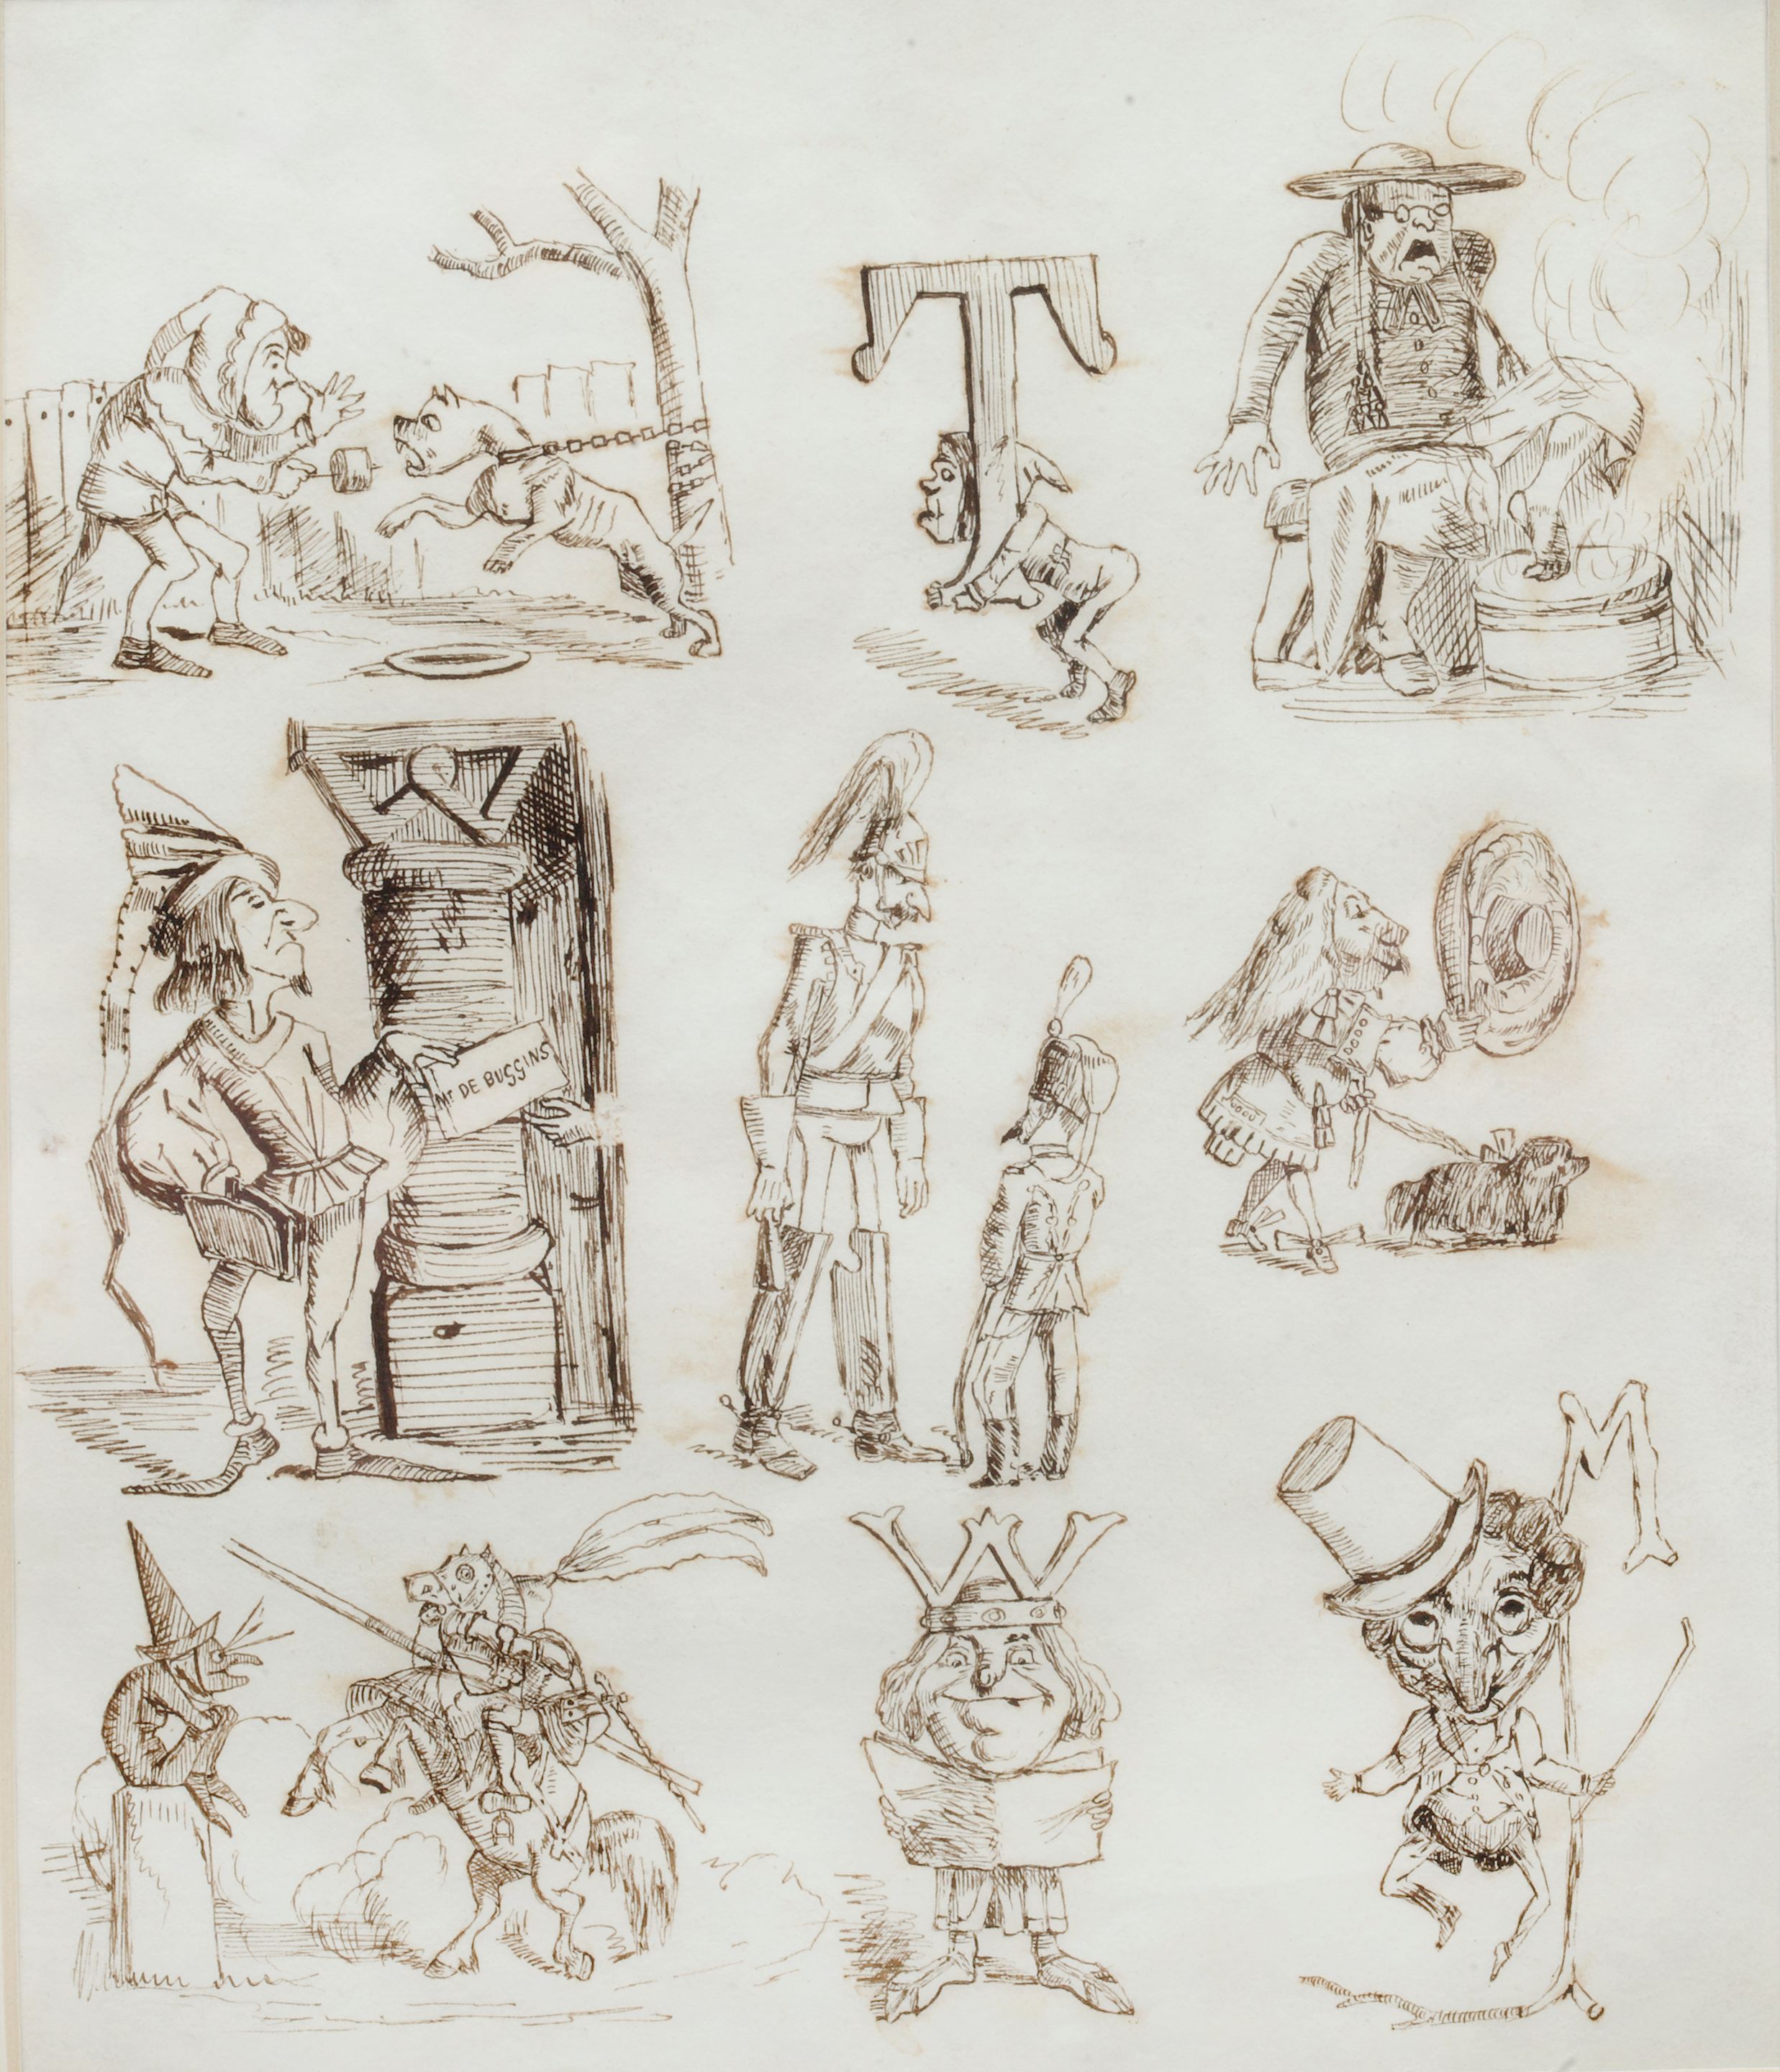 T
Mr DE BUGGINS
W
M